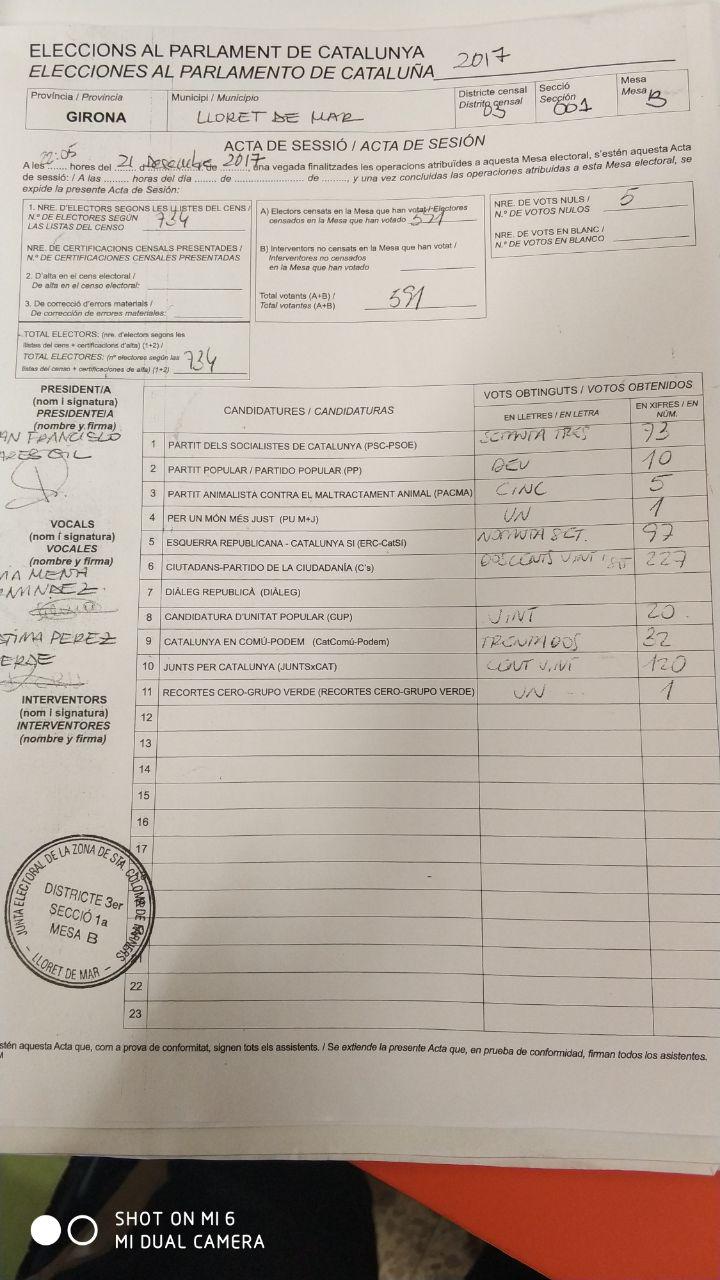 ELECCIONS AL PARLAMENT DE CATALUNYA
ELECCIONES AL PARLAMENTO DE CATALUÑA 2017
Província / Provincia
GIRONA
Municipi / Municipio
LLORET DE MAR
Districte censal
Distrito censal
03
Secció
Sección
001
Mesa
Mesa
B
ACTA DE SESSIÓ / ACTA DE SESIÓN
A les 22:05 hores del 21 de Desembre de 2017, una vegada finalitzades les operacions atribuïdes a aquesta Mesa electoral, s'estén aquesta Acta
de sessió: / A las ........ horas del día ....... de ................... de ......., y una vez concluidas las operaciones atribuidas a esta Mesa electoral, se
expide la presente Acta de Sesión:
1. NRE. D'ELECTORS SEGONS LES LLISTES DEL CENS /
N.º DE ELECTORES SEGÚN
LAS LISTAS DEL CENSO 734
NRE. DE CERTIFICACIONS CENSALS PRESENTADES /
N.º DE CERTIFICACIONES CENSALES PRESENTADAS
2. D'alta en el cens electoral /
De alta en el censo electoral:
3. De correcció d'errors materials /
De corrección de errores materiales:
TOTAL ELECTORS: (nre. d'electors segons les
llistes del cens + certificacions d'alta) (1+2) /
TOTAL ELECTORES: (nº electores según las
listas del censo + certificaciones de alta) (1+2) 734
A) Electors censats en la Mesa que han votat / Electores
censados en la Mesa que han votado 591
B) Interventors no censats en la Mesa que han votat /
Interventores no censados
en la Mesa que han votado
Total votants (A+B) /
Total votantes (A+B) 591
NRE. DE VOTS NULS /
N.º DE VOTOS NULOS 5
NRE. DE VOTS EN BLANC /
N.º DE VOTOS EN BLANCO
PRESIDENT/A
(nom i signatura)
PRESIDENTE/A
(nombre y firma)
AN FRANCISCO
ARES GIL
VOCALS
(nom i signatura)
VOCALES
(nombre y firma)
MENA
STIMA PEREZ
ERDE
INTERVENTORS
(nom i signatura)
INTERVENTORES
(nombre y firma)
CANDIDATURES / CANDIDATURAS
VOTS OBTINGUTS / VOTOS OBTENIDOS
EN LLETRES / EN LETRA
EN XIFRES / EN NÚM.
1 PARTIT DELS SOCIALISTES DE CATALUNYA (PSC-PSOE) SETANTA TRES 73
2 PARTIT POPULAR / PARTIDO POPULAR (PP) DEU 10
3 PARTIT ANIMALISTA CONTRA EL MALTRACTAMENT ANIMAL (PACMA) CINC 5
4 PER UN MÓN MÉS JUST (PU M+J) UN 1
5 ESQUERRA REPUBLICANA - CATALUNYA SI (ERC-CatSí) NORANTA SET. 97
6 CIUTADANS-PARTIDO DE LA CIUDADANÍA (C's) DOSCENTS VINT I SET 227
7 DIÀLEG REPUBLICÀ (DIÀLEG)
8 CANDIDATURA D'UNITAT POPULAR (CUP) VINT 20
9 CATALUNYA EN COMÚ-PODEM (CatComú-Podem) TRENTA DOS 32
10 JUNTS PER CATALUNYA (JUNTSxCAT) CENT VINT 120
11 RECORTES CERO-GRUPO VERDE (RECORTES CERO-GRUPO VERDE) UN 1
12
13
14
15
16
17
22
23
JUNTA ELECTORAL DE LA ZONA DE STA. COLOMA DE FARNERS
DISTRICTE 3er
SECCIÓ 1a
MESA B
– LLORET DE MAR –
stén aquesta Acta que, com a prova de conformitat, signen tots els assistents. / Se extiende la presente Acta que, en prueba de conformidad, firman todos los asistentes.
SHOT ON MI 6
MI DUAL CAMERA